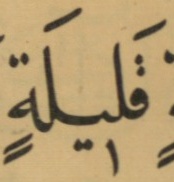 قَلِيلَةٍ
١